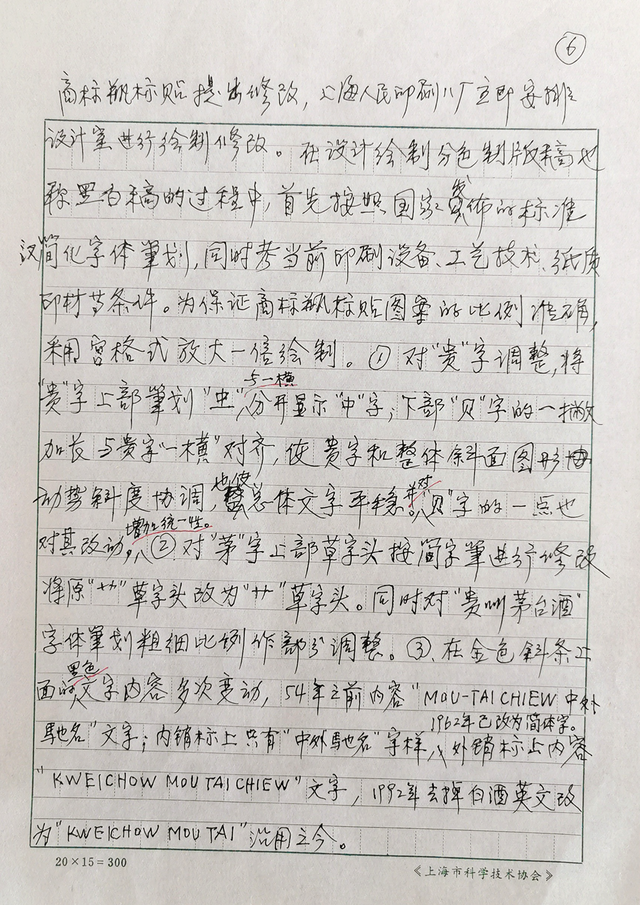 ⑥
商标瓶标贴提出修改,上海人民印刷八厂立即安排
设计室进行绘制修改。在设计绘制分色制版稿也
称黑白稿的过程中,首先按照国家发佈的标准
汉简化字体筆划,同时考当前印刷设备、工艺技术、纸质
印材等条件。为保证商标瓶标贴图案的比例准确,
采用宫格式放大一倍绘制。①对"贵"字调整,将
与一横
"贵"字上部筆划"虫",分开显示"中"字;下部"贝"字的一撇
加长与贵字"一横"对齐,使贵字和整体斜面图形
动势斜度协调,也使总体文字平稳。并对"贝"字的一点也
增加统一性。
对其改动,②对"茅"字上部草字头按简字筆进行修改
将原"艹"草字头改为"艹"草字头。同时对"贵州茅台酒"
字体筆划粗细比例作部分调整。③、在金色斜条上
黑色
面的文字内容多次变动,54年之前内容"MOU-TAI CHIEW 中外
1962年已改为简体字。
馳名"文字;内销标上只有"中外馳名"字样,外销标上内容
"KWEICHOW MOU TAI CHIEW"文字,1992年去掉白酒英文改
为"KWEICHOW MOU TAI"沿用之今。
20×15=300
《上海市科学技术协会》